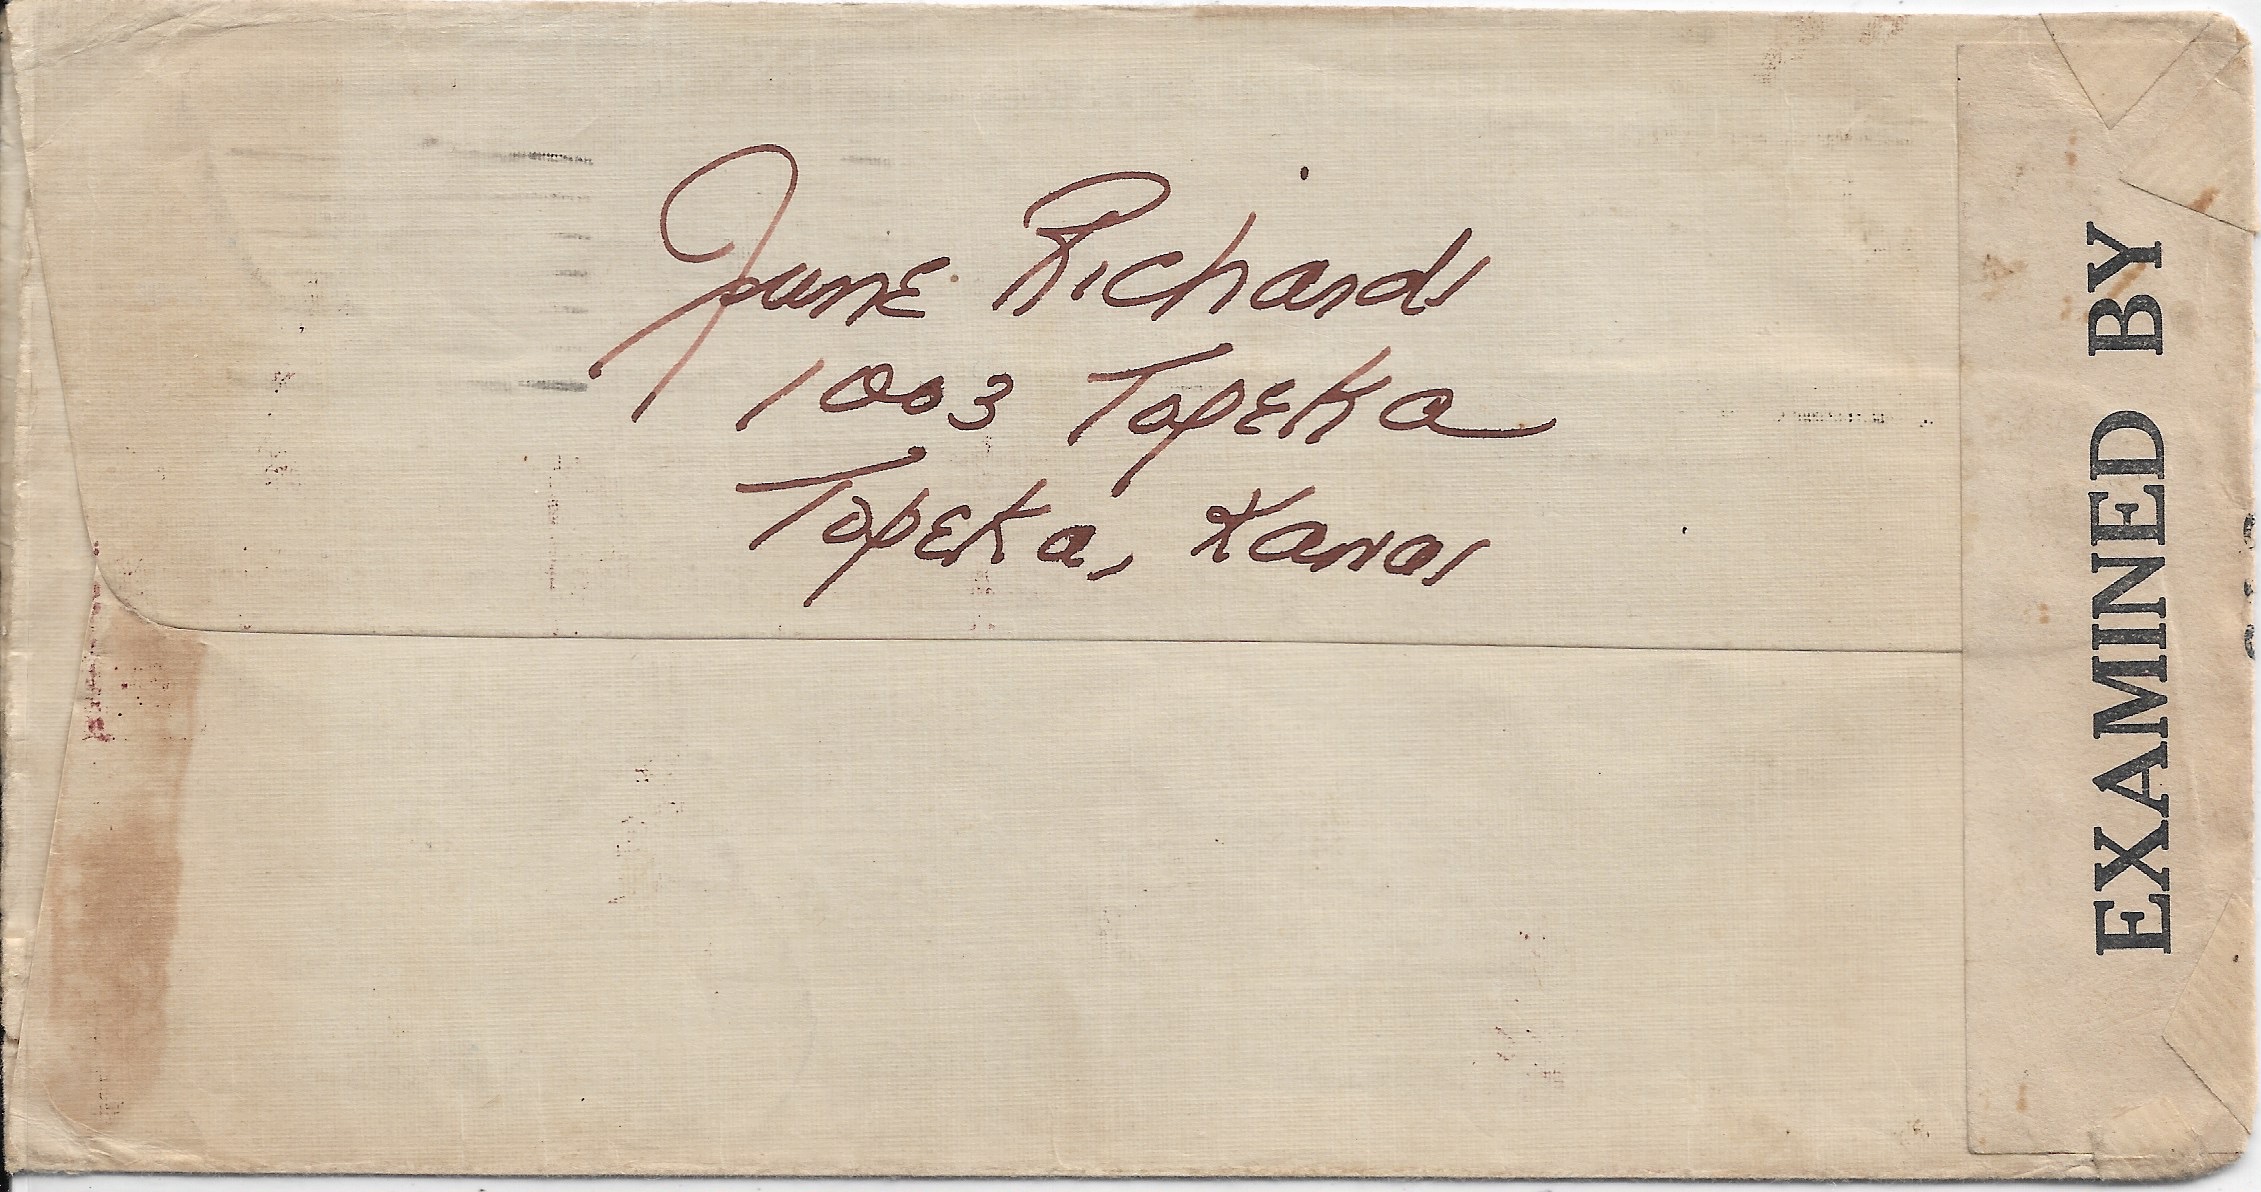 June Richards
1003 Topeka
Topeka, Kansas
EXAMINED BY